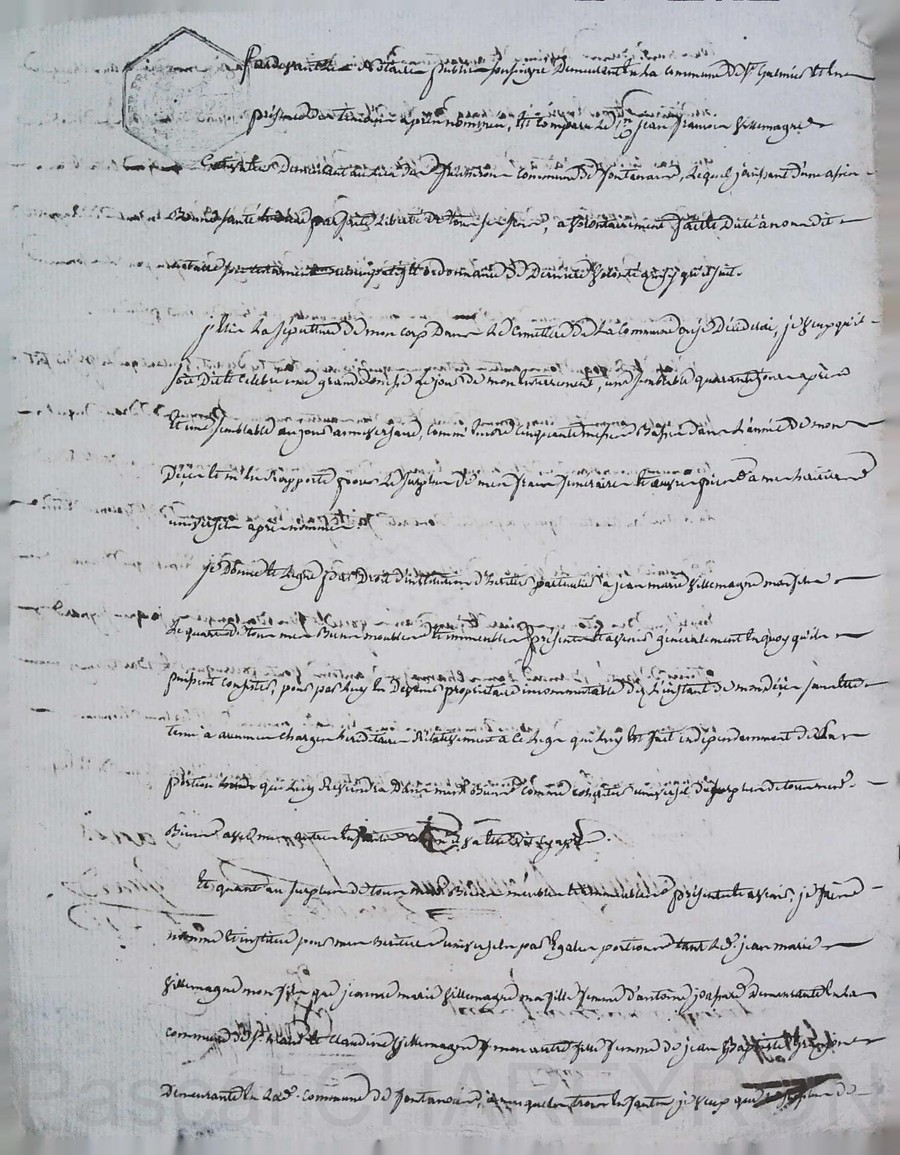 Pardevant notaire public soussigné demeurant en la commune de St Galmier et en
présence des témoins après nommés, est comparu le Sr jean françois Villemagne
demeurant au lieu de commune de fontanès, lequel jouissant d'une assés
bonne santé parfaite liberté de tous ses sens, a volontairement fait et dicté à nous dit
notaire ordonnance de dernière volonté ainsy qu'il suit.
j'élis la sépulture de mon corps dans le cimetière de la commune ou je décéderai, je veux qu'il
soit dit et célébré une grande messe le jour de mon enterrement, une semblable quarante jours après
et une semblable au jour anniversaire, comme encore cinquante messes basses dans l'année de mon
décès et m'en rapporte pour le surplus de mes frais funéraires et œuvres pies à mes héritiers
universels après nommés.
je donne et lègue par droit d'institution d'héritier particulier à jean marie Villemagne mon fils
le quart de tous mes biens meubles et immeubles présents et avenir généralement en quoy qu'ils
puissent consister, pour par luy en devenir propriétaire incommutable dès l'instant de mon décès sans être
tenu à aucunes charges héréditaires relativement à ce legs qui luy est fait indépendamment de la
portion qui luy reviendra dans mes biens comme héritier universel du surplus de tous mes
biens avec mes autres enfants
Et quant au surplus de tous mes biens meubles et immeubles présents et avenir, je fais
nomme et institue pour mes héritiers universels par égales portions tant led. jean marie
Villemagne mon fils que jeanne marie Villemagne ma fille femme d'antoine demeurante en la
commune de St et Claudine Villemagne mon autre fille femme de jean Baptiste
demeurante en lad. commune de fontanès, auxquels trois enfants je veux que de
Pascal CHAREYRON